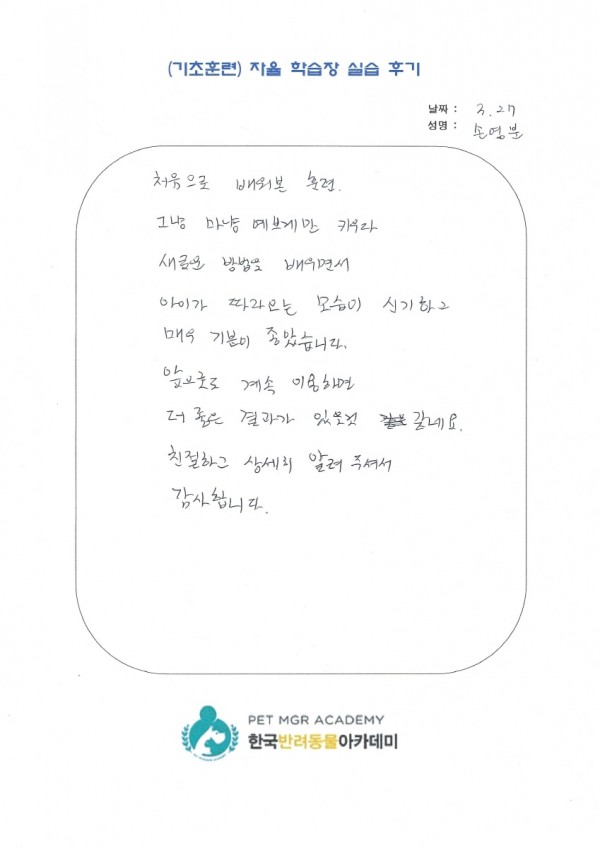 (기초훈련) 자율 학습장 실습 후기
날짜 : 3.27
성명 : 손영분
처음으로 배워본 훈련.
그냥 마냥 예쁘게만 키우라
새로운 방법을 배우면서
아이가 따라오는 모습이 신기하고
매우 기분이 좋았습니다.
앞으로도 계속 이용하면
더 좋은 결과가 있을것 같네요.
친절하고 상세히 알려 주셔서
감사합니다.
PET MGR ACADEMY
한국반려동물아카데미